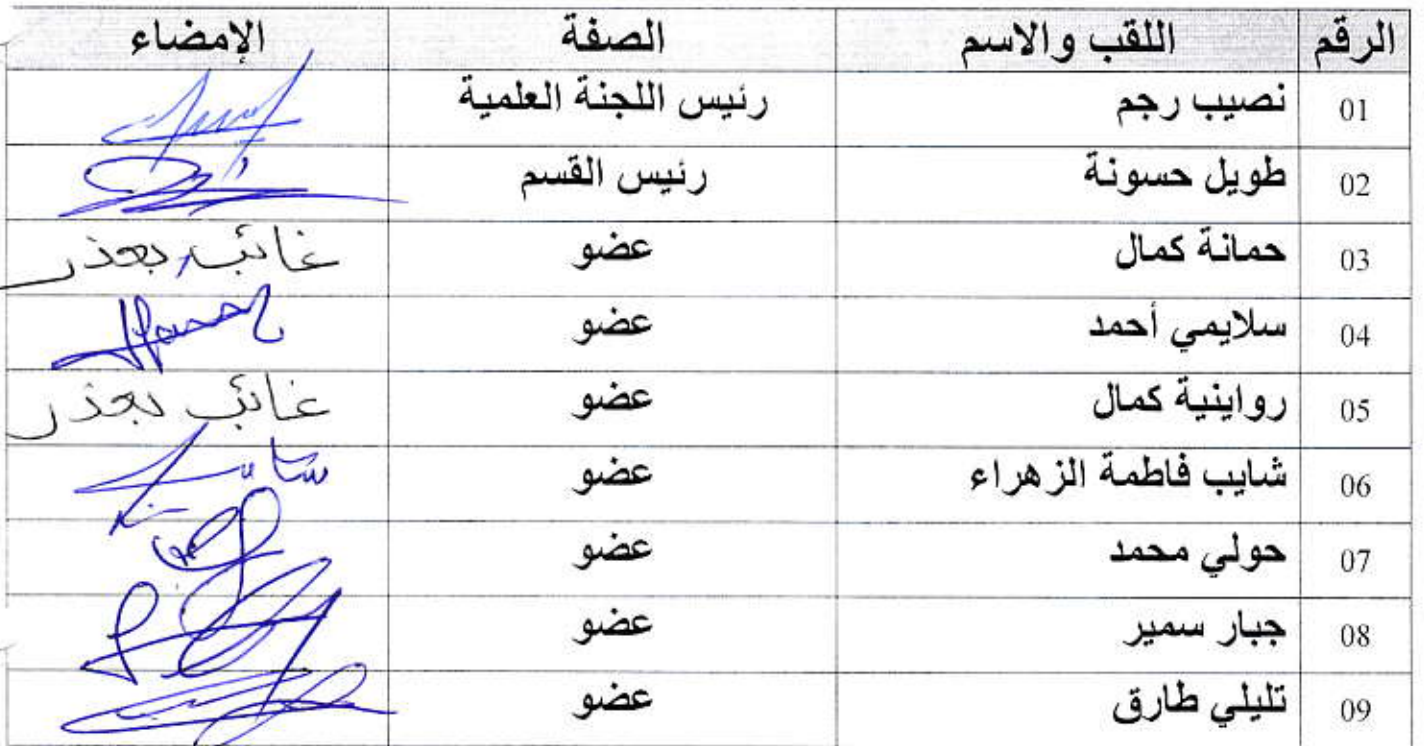 الرقم اللقب والاسم الصفة الإمضاء
01 نصيب رجم رئيس اللجنة العلمية
02 طويل حسونة رئيس القسم
03 حمانة كمال عضو غائب بعذر
04 سلايمي أحمد عضو
05 رواينية كمال عضو غائب بعذر
06 شايب فاطمة الزهراء عضو
07 حولي محمد عضو
08 جبار سمير عضو
09 تليلي طارق عضو